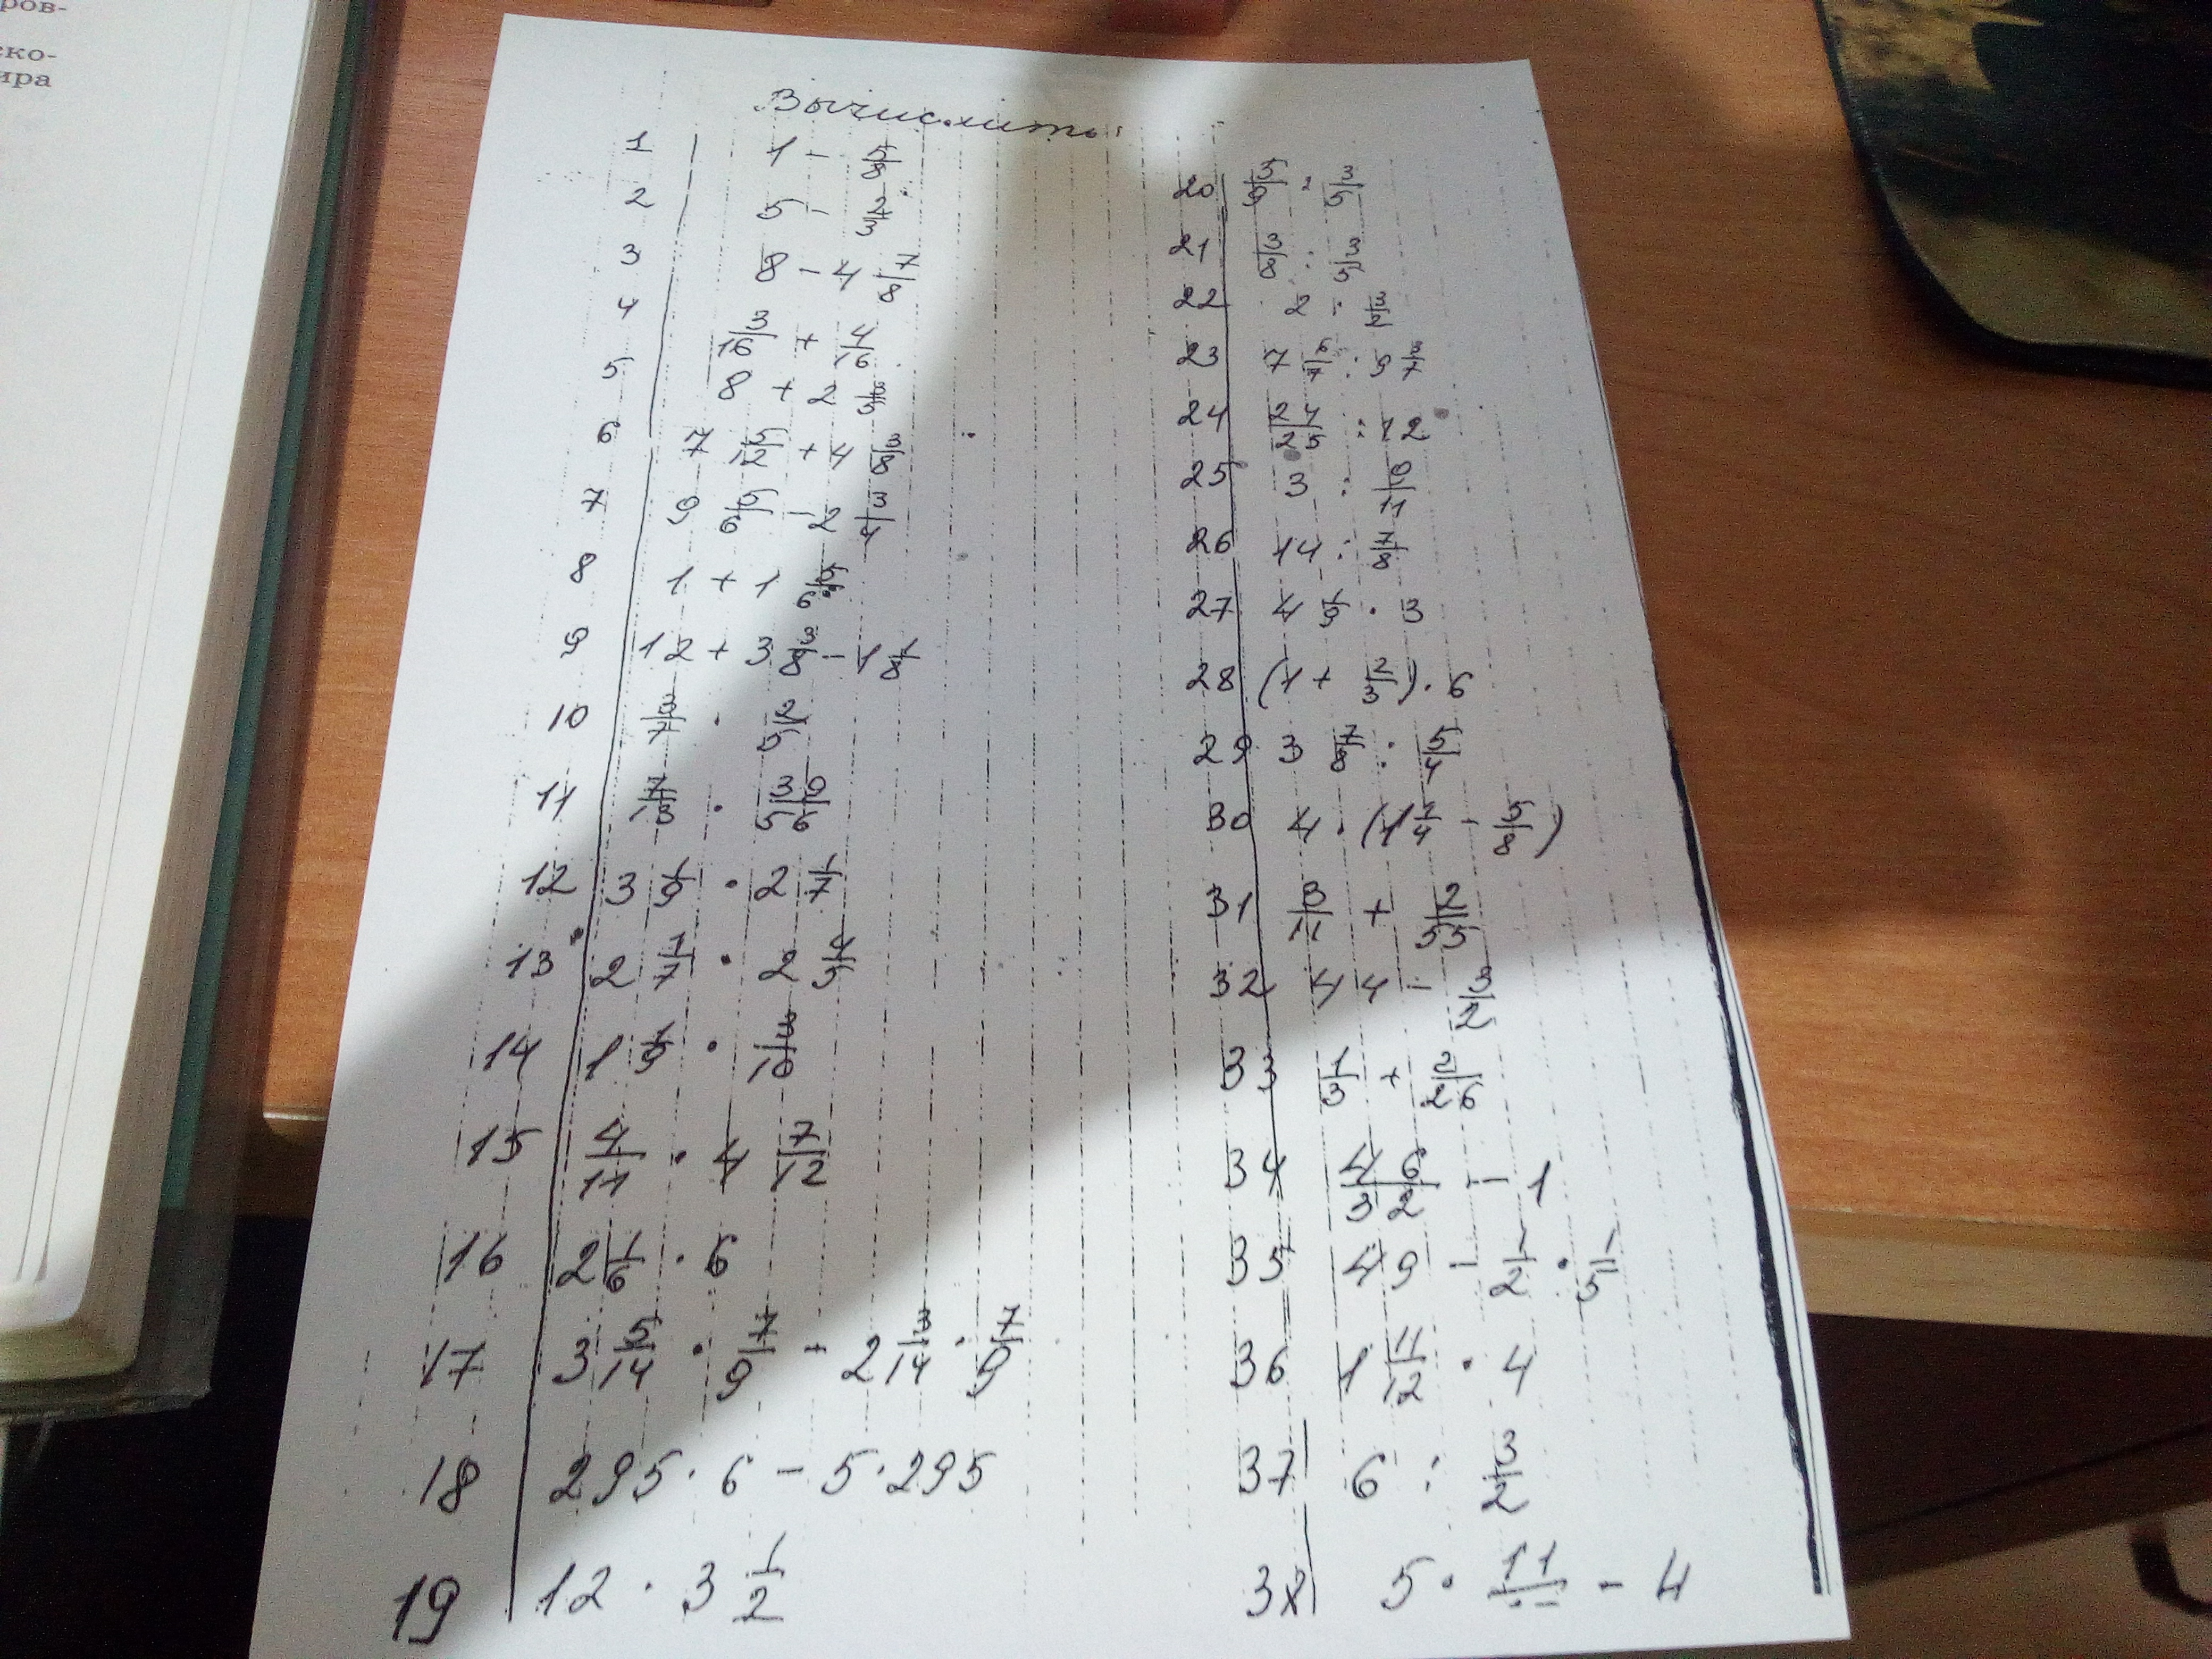 ров-
ско-
ира
Вычислить:
1 1 - 5/8
2 5 - 2/3
3 8 - 4 7/8
4 3/16 + 4/16
5 8 + 2 3/5
6 7 5/12 + 4 3/8
7 9 5/6 - 2 3/4
8 1 + 1 5/6
9 12 + 3 3/8 - 1 1/8
10 3/7 · 2/5
11 7/13 · 39/56
12 3 1/9 · 2 1/7
13 2 1/7 · 2 4/5
14 1 1/9 · 3/10
15 4/11 · 4 7/12
16 2 1/6 · 6
17 3 5/14 · 7/9 - 2 3/14 · 7/9
18 295 · 6 - 5 · 295
19 12 · 3 1/2
20 5/9 : 3/5
21 3/8 : 3/5
22 2 : 3/2
23 7 6/7 : 9 3/7
24 24/25 : 12
25 3 : 9/11
26 14 : 7/8
27 4 1/9 · 3
28 (1 + 2/3) · 6
29 3 7/8 : 5/4
30 4 · (1 1/4 - 5/8)
31 3/11 + 2/55
32 44 - 3/2
33 1/3 + 2/26
34 46/32 - 1
35 49 - 1/2 · 1/5
36 1 11/12 · 4
37 6 : 3/2
38 5 · 11/ - 4